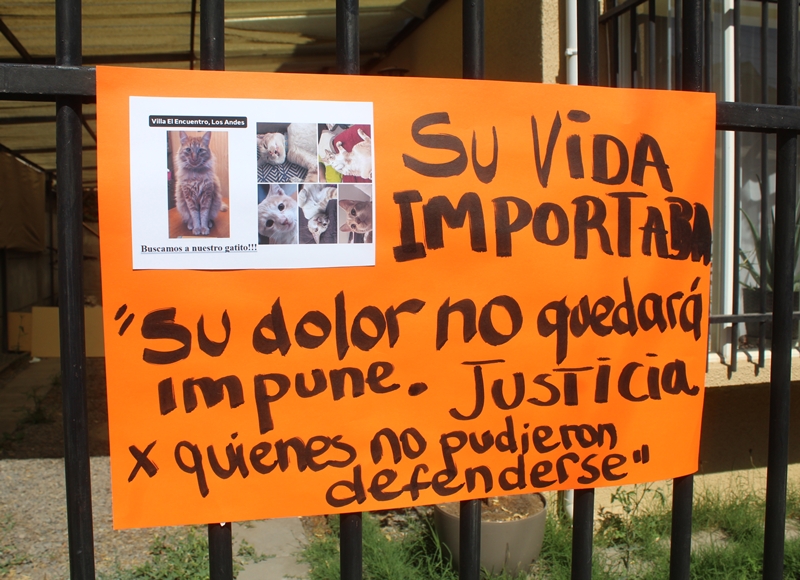 Villa El Encuentro, Los Andes
Buscamos a nuestro gatito!!!
SU VIDA
IMPORTABA
"Su dolor no quedará
impune. Justicia
x quienes no pudieron
defenderse"